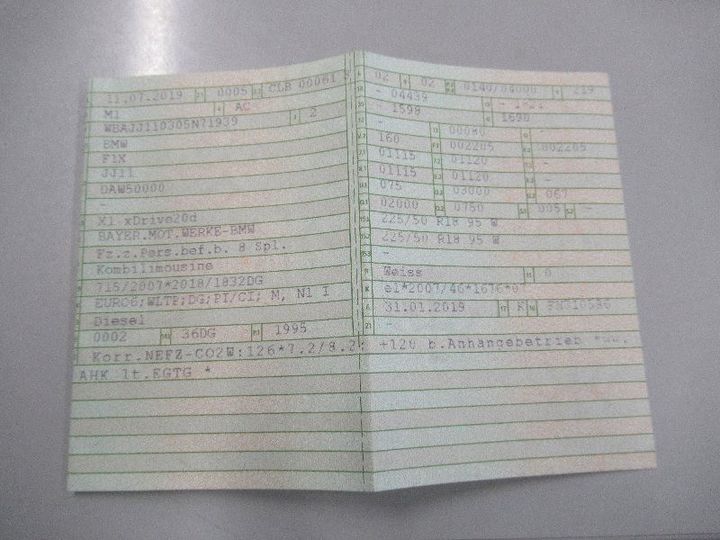 11.07.2019 0005 CLB 00061
M1 AC
WBAJJ110305N71939 2
BMW
F1X
JJ11
DAW50000
-
X1 xDrive20d
BAYER.MOT.WERKE-BMW
Fz.z.Pers.bef.b. 8 Spl.
Kombilimousine
715/2007*2018/1832DG
EURO6;WLTP;DG;PI/CI; M, N1 I
Diesel
0002 36DG 1995
02 02 0140/04000 219
- 04439
- 1598 1690
- 00080 -
160 002205 002205
01115 01120 -
01115 01120 -
075 03000 067
02000 0750 005 -
225/50 R18 95 W
225/50 R18 95 W
-
Weiss 0
e1*2007/46*1676*0
31.01.2019 K
-
Korr.NEFZ-CO2W:126*7.2/8.2: +120 b.Anhängebetrieb
AHK lt.EGTG *